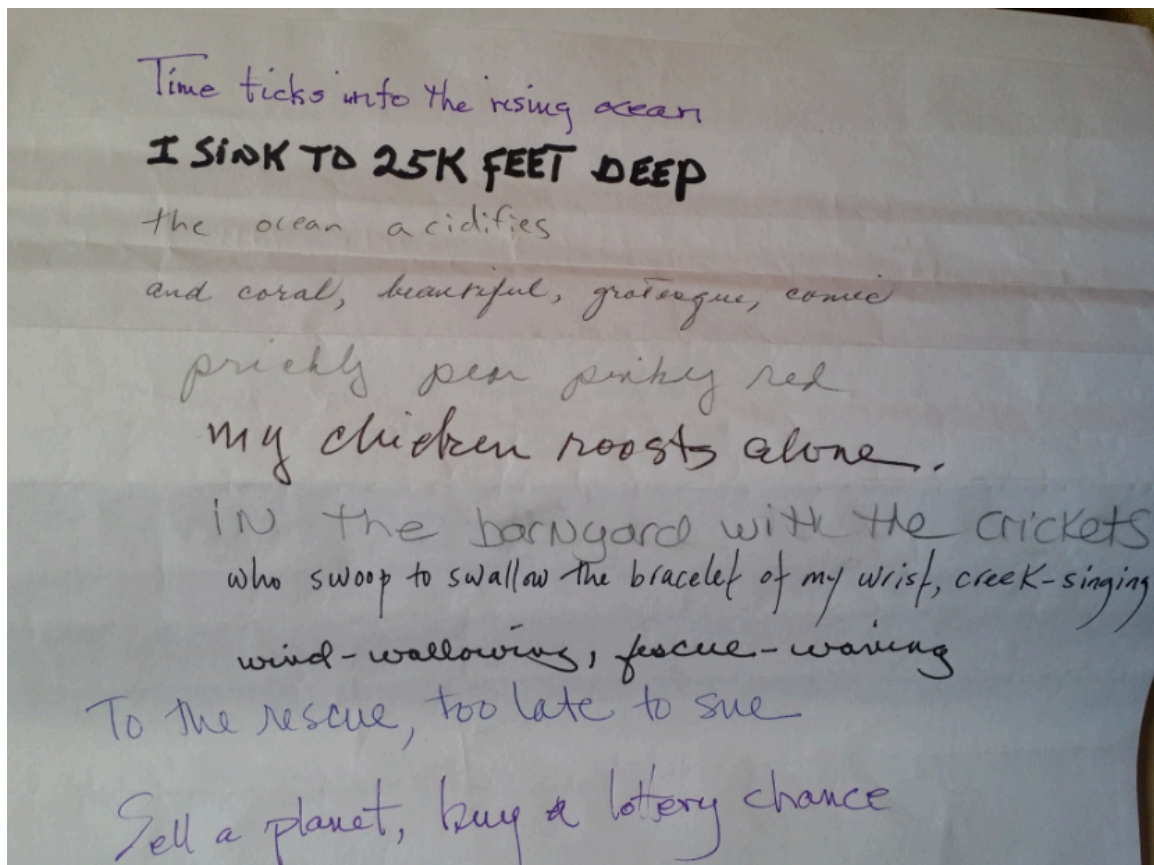 Time ticks into the rising ocean
I SINK TO 25K FEET DEEP
the ocean acidifies
and coral, beautiful, grotesque, comic
prickly pear pinky red
my chicken roosts alone.
iN the barNyard with the crickets
who swoop to swallow the bracelet of my wrist, creek-singing
wind-wallowing, fescue-waving
To the rescue, too late to sue
Sell a planet, buy a lottery chance